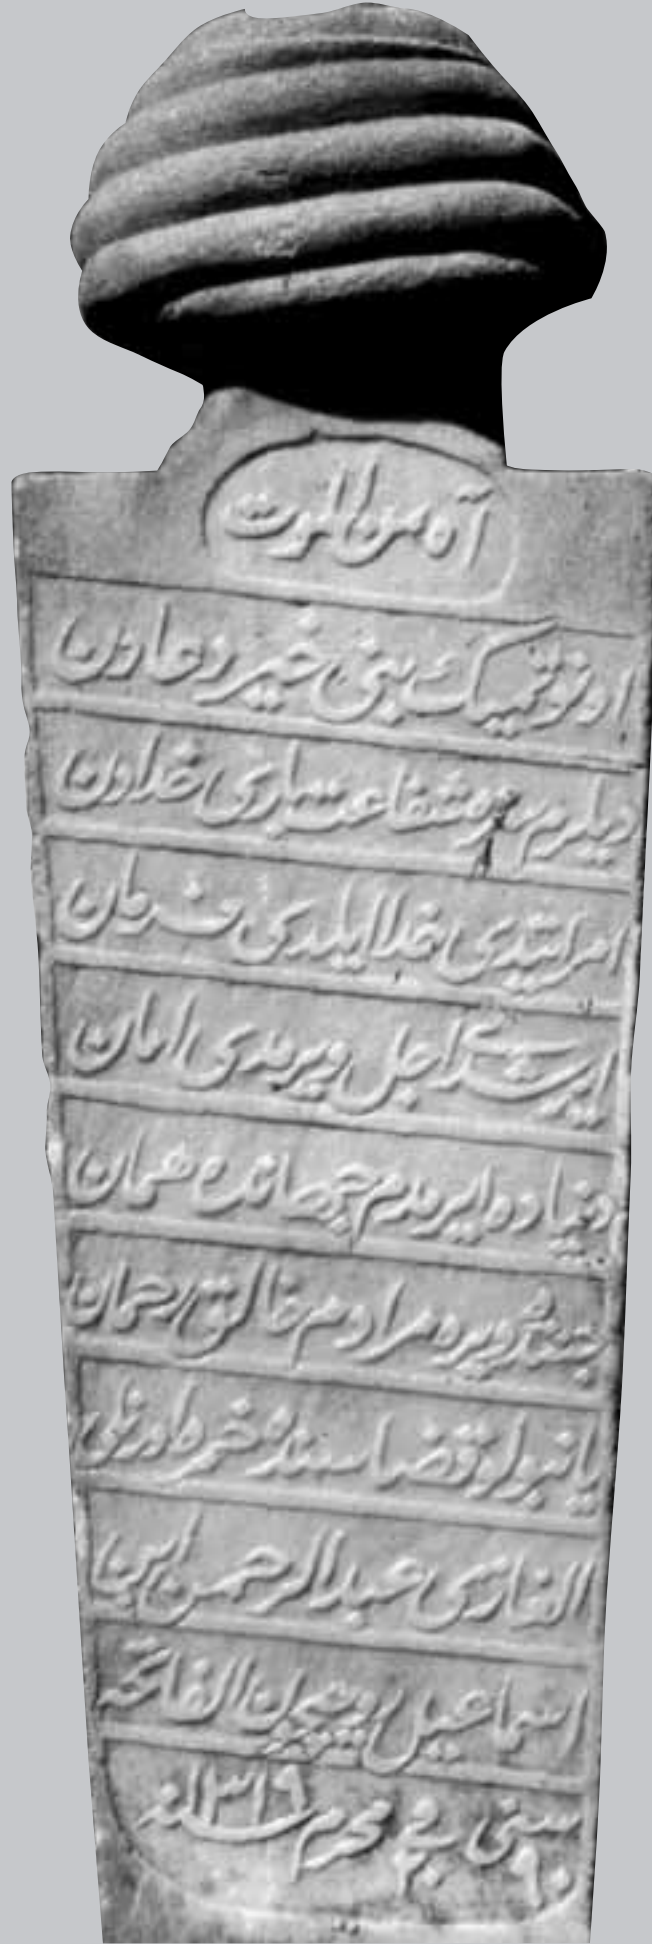 آه من الموت
اونوتميك بنى خير دعادن
ديلرم شفاعت بارئ خدادن
امر ايتدى خدا ايلدى فرمان
ايريشدى اجل ويرمدى امان
دنياده ايرمدم جهانده همان
جنتده ويره مرادم خالق رحمان
يانبولو قضاسنده
الغازى عبد الرحمن ابن
اسماعيل روحيچون الفاتحه
سنى ٩٠ فى ٢ محرم سنه ١٣١٩